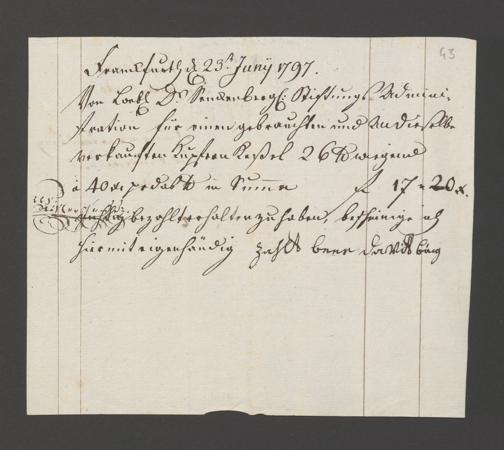 43
Franckfurth d 23t Junij 1797.
Von Löbl. Dr. Senckenbergl: Stiftungs Admini-
stration für einen gebrauchten und An dieselbe
verkauften Kupfern Keßel 26 ℔ wiegend
à 40 x per ℔ in Summa f 17 = 20 x.
richtig bezahlt erhalten zu haben, bescheinige ich
hiermit eigenhändig